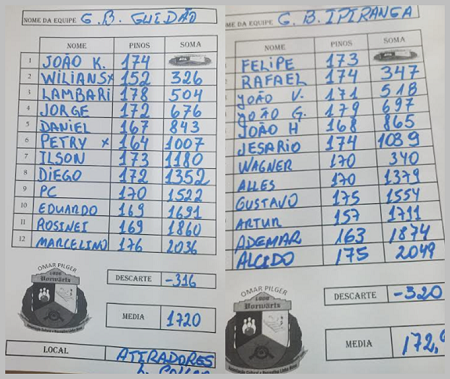 NOME DA EQUIPE G. B. GUIDÃO
NOME PINOS SOMA
1 JOÃO K. 174
2 WILIANS x 152 326
3 LAMBARI 178 504
4 JORGE 172 676
5 DANIEL 167 843
6 PETRY x 164 1007
7 ILSON 173 1180
8 DIEGO 172 1352
9 PC 170 1522
10 EDUARDO 169 1691
11 ROSINEI 169 1860
12 MARCELINO 176 2036
OMAR PILGER
1908
Vorwärts
DESCARTE -316
MEDIA 1720
LOCAL ATIRADORES
NOME DA EQUIPE G. B. IPIRANGA
NOME PINOS SOMA
FELIPE 173
RAFAEL 174 347
JOÃO V. 171 518
JOÃO G. 179 697
JOÃO H 168 865
JESARIO 174 1039
WAGNER 170
ALLES 170 1379
GUSTAVO 175 1554
ARTUR 157 1711
ADEMAR 163 1874
ALCIDO 175 2049
OMAR PILGER
1908
Vorwärts
DESCARTE -320
MEDIA 172,9